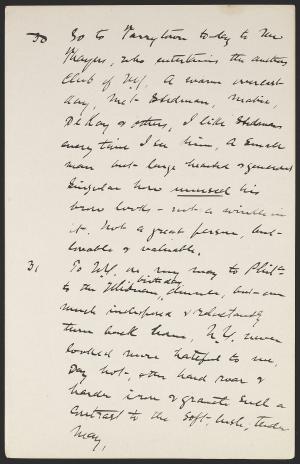 30 Go to Tarrytown to-day to the
Thayers, who entertains the authors
Club of N.Y. A warm overcast
day, Met Stedman, Mabie,
DeKay & others, I like Stedman
every time I see him, A small
man but large hearted & generous
Singular how unused his
brow looks - not a wrinkle in
it. Not a great person, but
lovable & valuable.
31 To N.Y. on my way to Phila
to the Whitman birthday dinner, but am
much indisposed & reluctantly
turn back home, N.Y. never
looked more hateful to me,
Day hot, & the hard roar &
harder iron & granite such a
contrast to the soft, lush, tender
May,